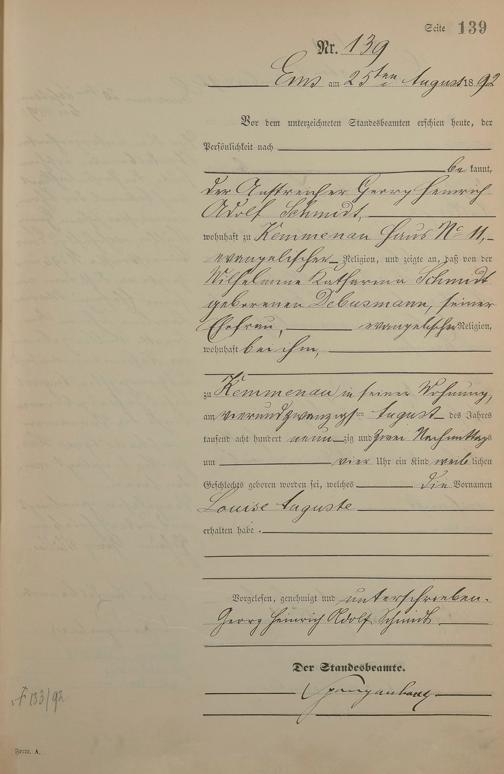 Seite 139
Nr. 139
Ems am 25ten August 1892
Vor dem unterzeichneten Standesbeamten erschien heute, der
Persönlichkeit nach
bekannt,
der Anstreicher Georg Heinrich
Adolf Schmidt,
wohnhaft zu Kemmenau Haus No 11,
evangelischer Religion, und zeigte an, daß von der
Wilhelmine Katharina Schmidt
geborenen Debusmann, seiner
Ehefrau, evangelischer Religion,
wohnhaft bei ihm,
zu Kemmenau in seiner Wohnung,
am vierundzwanzigsten August des Jahres
tausend acht hundert neunzig und zwei Nachmittags
um vier Uhr ein Kind weiblichen
Geschlechts geboren worden sei, welches die Vornamen
Louise Auguste
erhalten habe.
Vorgelesen, genehmigt und unterschrieben.
Georg Heinrich Adolf Schmidt
Der Standesbeamte.
Spangenberg
F 133/92
Form. A.